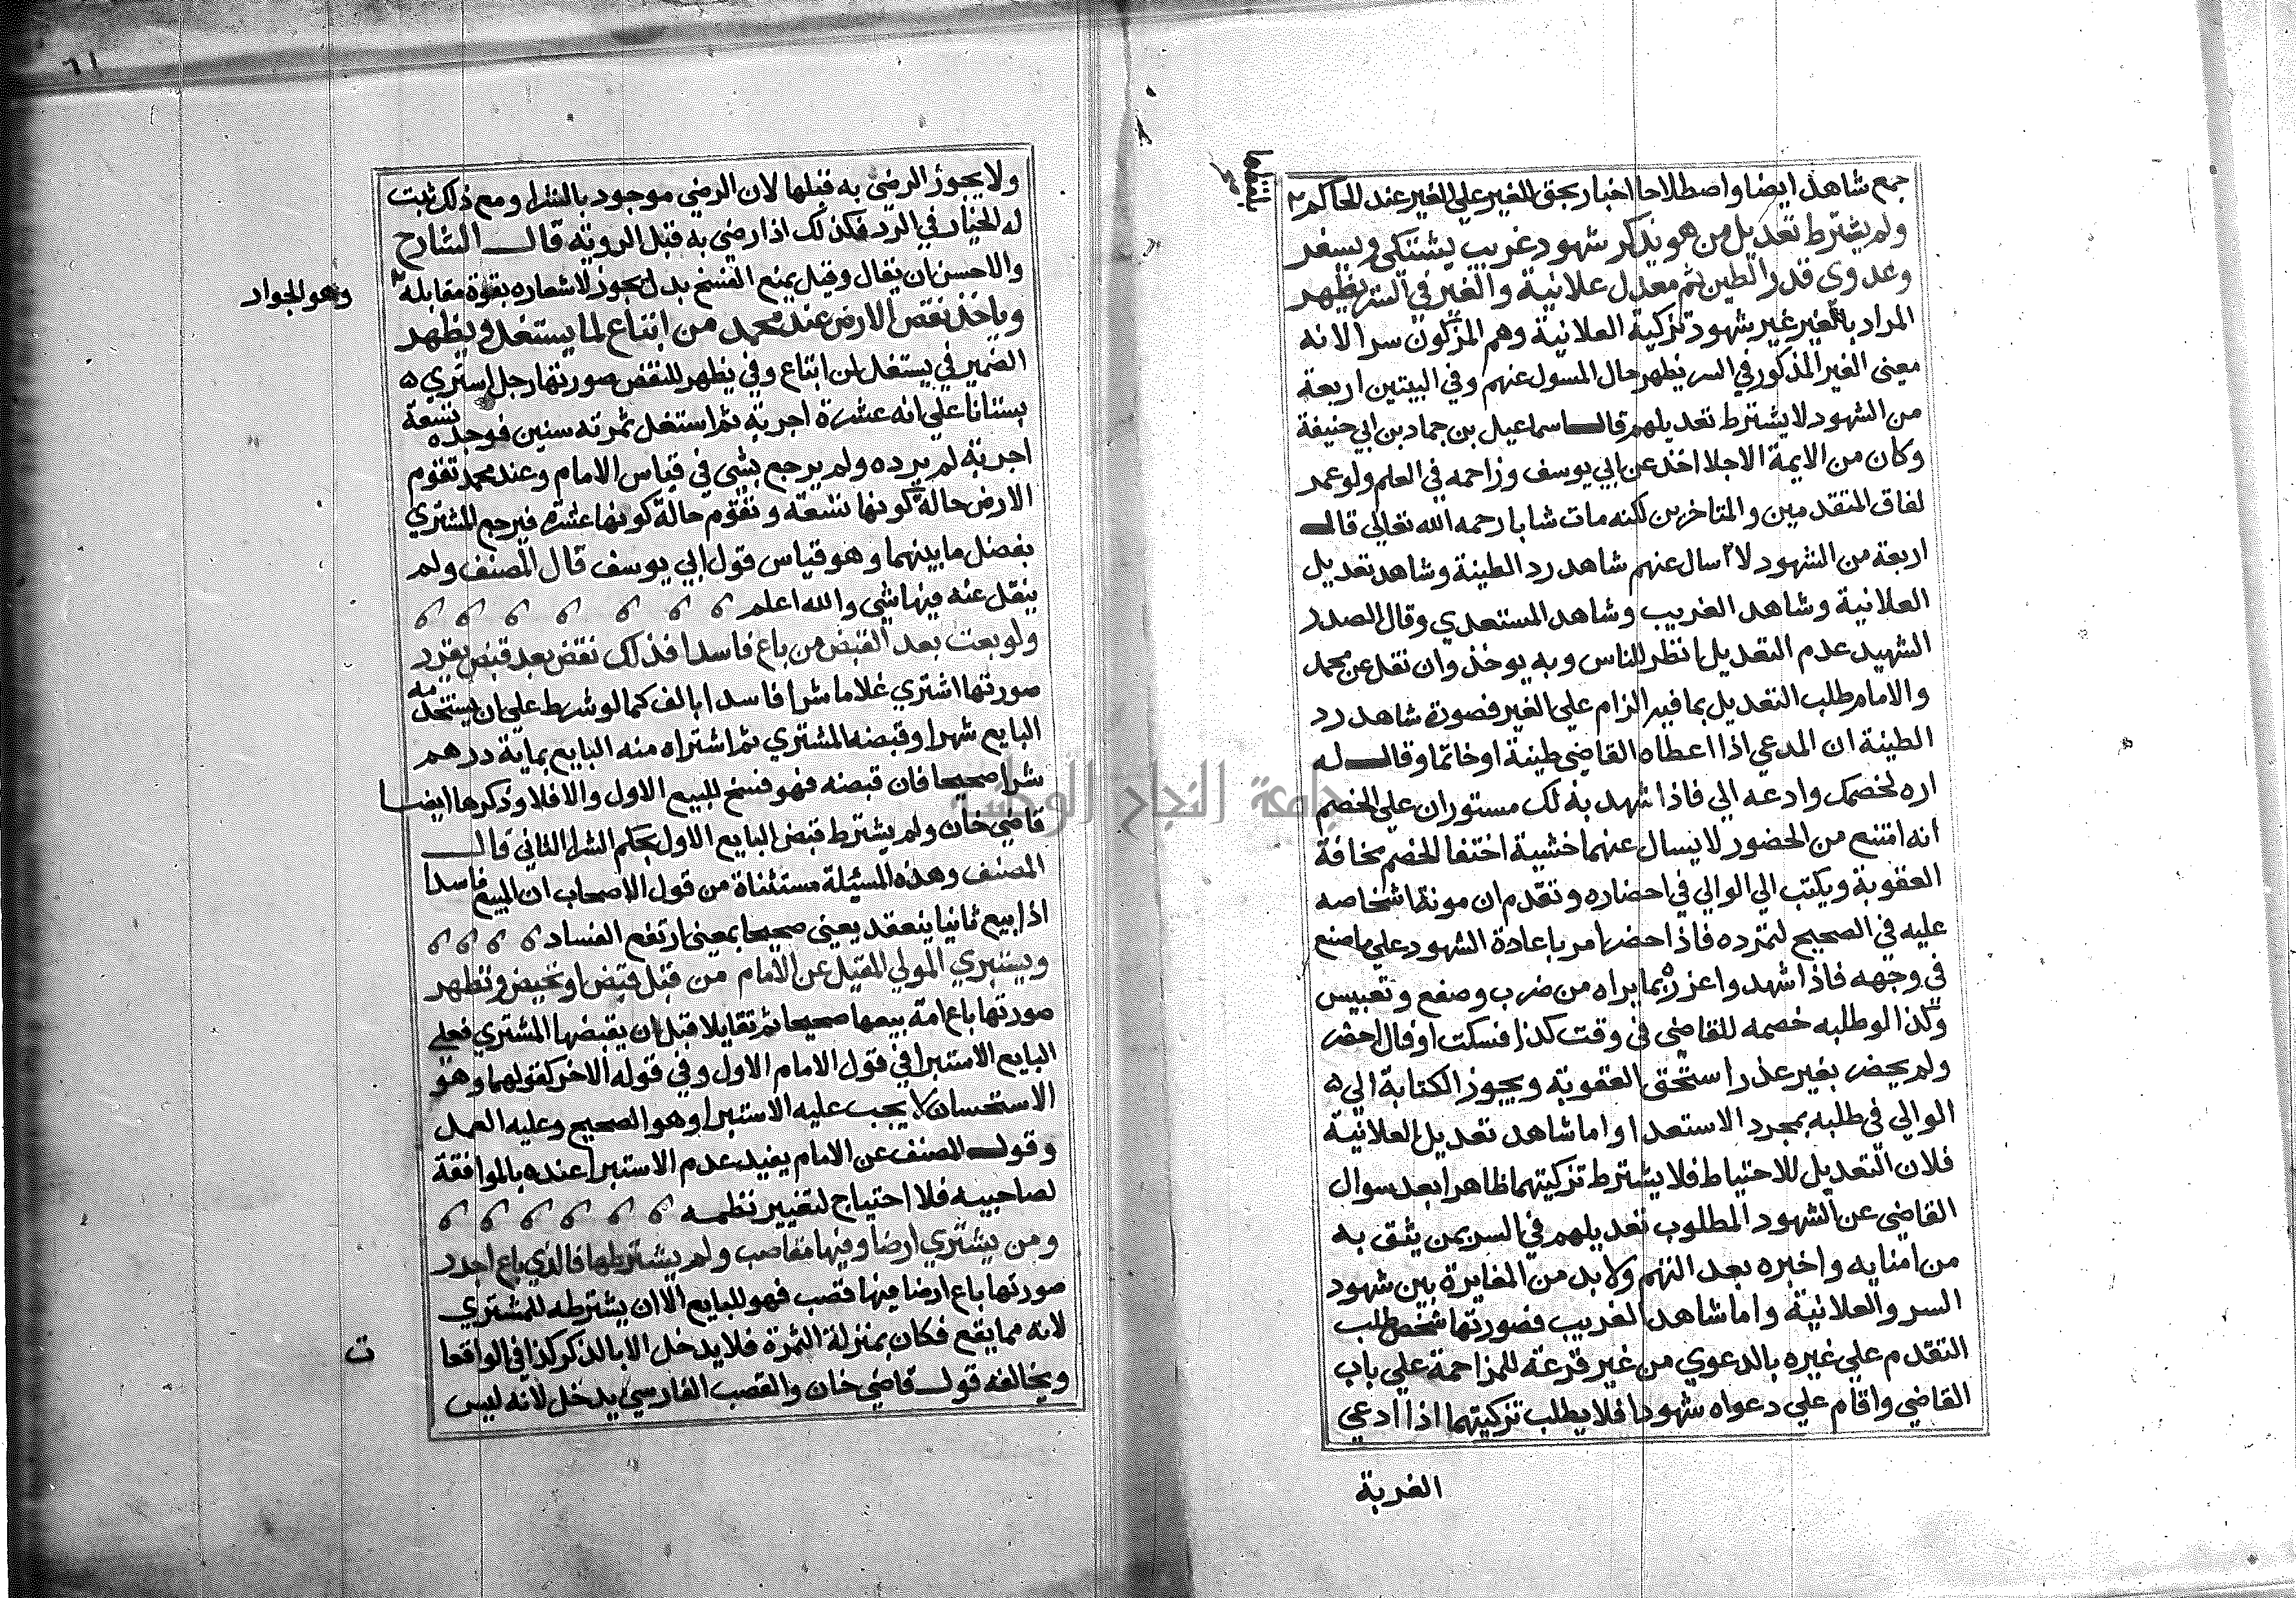 جمع شاهد ايضا واصطلاحا اخبار بحق الغير علي الغير عند الحاكم ٢
بلفظها
ولم يشترط تعديل من هو يذكر شهود غريب يشتكى ويسفر
وعدوى قدر الطين ثم معدل علانية والغير في السر يظهر
المراد بالغير غير شهود تزكية العلانية وهم المزكون سرا لانه
معنى الغير المذكور في السر يظهر حال المسول عنهم وفي البيتين اربعة
من الشهود لا يشترط تعديلهم قال اسماعيل بن حماد بن ابي حنيفة
وكان من الايمة الاجلا اخذ عن ابي يوسف وزاحمه في العلم ولو عمر
لفاق المتقدمين والمتاخرين لكنه مات شابا رحمه الله تعالي قال
اربعة من الشهود لا اسال عنهم شاهد رد الطينة وشاهد تعديل
العلانية وشاهد الغريب وشاهد المستعدي وقال الصدر
الشهيد عدم التعديل انظر للناس وبه يوخذ وان نقل عن محمد
والامام طلب التعديل بما فيه الزام علي الغير فصورة شاهد رد
الطينة ان المدعي اذا اعطاه القاضي طينة او خاتما وقال له
اره لخصمك وادعه الي فاذا شهد بذلك مستوران علي الخصم
انه امتنع من الحضور لا يسال عنهما خشية اختفا الخصم مخافة
العقوبة ويكتب الي الوالي في احضاره وتقدم ان مونة اشخاصه
عليه في الصحيح لتمرده فاذا احضر امر باعادة الشهود علي ما صنع
في وجهه فاذا شهدوا عزره بما يراه من ضرب وصفع وتعبيس
وكذا لو طلبه خصمه للقاضي في وقت كذا فسكت او قال احضر
ولم يحضر بغير عذر استحق العقوبة ويجوز الكتابة الي ٥
الوالي في طلبه بمجرد الاستعدا واما شاهد تعديل العلانية
فلان التعديل للاحتياط فلا يشترط تزكيتهما ظاهرا بعد سوال
القاضي عن الشهود المطلوب تعديلهم في السر بمن يثق به
من امنايه واخبره بعد التهم ولا بد من المغايرة بين شهود
السر والعلانية واما شاهد الغريب فصورتها شخص طلب
التقدم علي غيره بالدعوي من غير قرعة للمزاحمة علي باب
القاضي واقام علي دعواه شهودا فلا يطلب تزكيتهما اذا ادعي
الغربة
٦١
ولا يجوز الرضي به قبلها لان الرضي موجود بالشرا ومع ذلك ثبت
له الخيار في الرد فكذلك اذا رضي به قبل الروية قال الشارح
والاحسن ان يقال وقيل يمنع الفسخ بدل يجوز لاشعاره بقوة مقابله ٢
وهو الجواز
وياخذ نقص الارض عند محمد من ابتاع لما يستغل ويظهر
الضمير في يستغل لمن ابتاع وفي يظهر للنقص صورتها رجل اشتري ٥
بستانا علي انه عشرة اجربة ثم استغل ثمرته سنين فوجده تسعة
اجربة لم يرده ولم يرجع بشي في قياس الامام وعند محمد تقوم
الارض حالة كونها تسعة وتقوم حالة كونها عشرة فيرجع المشتري
بفضل ما بينهما وهو قياس قول ابي يوسف قال المصنف ولم
ينقل عنه فيها شي والله اعلم
ولو بعت بعد القبض من باع فاسدا فذلك نقض بعد قبض يقدر
صورتها اشتري غلاما شرا فاسدا بالف كما لو شرط علي ان يستخدمه
البايع شهرا وقبضه المشتري ثم اشتراه منه البايع بماية درهم
شرا صحيحا فان قبضه فهو فسخ للبيع الاول والا فلا وذكرها ايضا
قاضي خان ولم يشترط قبض البايع الاول بحكم الشرا الثاني قال
المصنف وهذه المسئلة مستثناة من قول الاصحاب ان المبيع فاسدا
اذا بيع ثانيا ينعقد يعني صحيحا بمعني ارتفع الفساد
ويستبري المولي المقيل عن الامام من قبل قبض او تحيض وتطهر
صورتها باع امة بيعها صحيحا ثم تقايلا قبل ان يقبضها المشتري فعلي
البايع الاستبرا في قول الامام الاول وفي قوله الاخر كقولهما وهو
الاستحسان لا يجب عليه الاستبرا وهو الصحيح وعليه العمل
وقول المصنف عن الامام يفيد عدم الاستبرا عنده بالموافقة
لصاحبيه فلا احتياج لتغيير نظمه
ومن يشتري ارضا وفيها مقاصب ولم يشترطها فالذي باع اجدر
صورتها باع ارضا فيها قصب فهو للبايع الا ان يشترطه للمشتري
لانه مما يقع فكان بمنزلة الثمرة فلا يدخل الا بالذكر كذا في الواقعا
ت
ويخالفه قول قاضي خان والقصب الفارسي يدخل لانه ليس
جامعة النجاح الوطنية